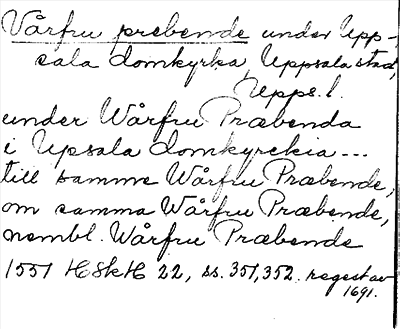 Vårfru prebende under Upp-
sala domkyrka, Uppsala stad,
Upps. l.
under Wårfru Præbenda
i Upsala domkyrckia ...
till samme Wårfru Præbende,
om samma Wårfru Præbende,
nembl. Wårfru Præbende
1551 HSkH 22, ss. 351, 352. regest av
1691.